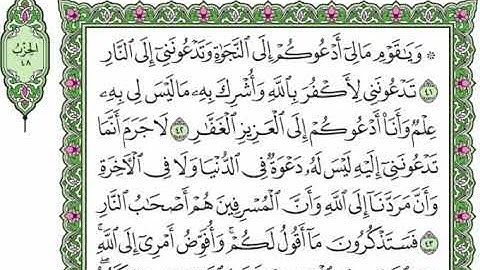 الحزب
٤٨
۞ وَيَٰقَوْمِ مَا لِىٓ أَدْعُوكُمْ إِلَى ٱلنَّجَوٰةِ وَتَدْعُونَنِىٓ إِلَى ٱلنَّارِ
٤١ تَدْعُونَنِى لِأَكْفُرَ بِٱللَّهِ وَأُشْرِكَ بِهِۦ مَا لَيْسَ لِى بِهِۦ
عِلْمٌ وَأَنَا۠ أَدْعُوكُمْ إِلَى ٱلْعَزِيزِ ٱلْغَفَّٰرِ ٤٢ لَا جَرَمَ أَنَّمَا
تَدْعُونَنِىٓ إِلَيْهِ لَيْسَ لَهُۥ دَعْوَةٌ فِى ٱلدُّنْيَا وَلَا فِى ٱلْءَاخِرَةِ
وَأَنَّ مَرَدَّنَآ إِلَى ٱللَّهِ وَأَنَّ ٱلْمُسْرِفِينَ هُمْ أَصْحَٰبُ ٱلنَّارِ
٤٣ فَسَتَذْكُرُونَ مَآ أَقُولُ لَكُمْ ۚ وَأُفَوِّضُ أَمْرِىٓ إِلَى ٱللَّهِ ۚ